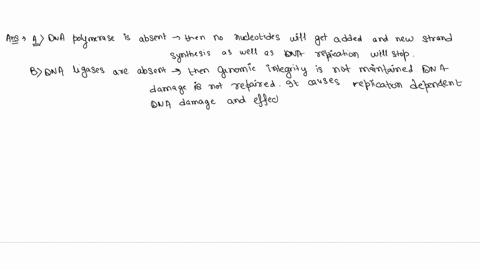 Ans → A> DNA polymerase is absent → then no nucleotides will get added and new strand
synthesis as well as DNA replication will stop.
B> DNA ligases are absent → then Genomic integrity is not maintained DNA
damage is not repaired. It causes replication dependent
DNA damage and effec